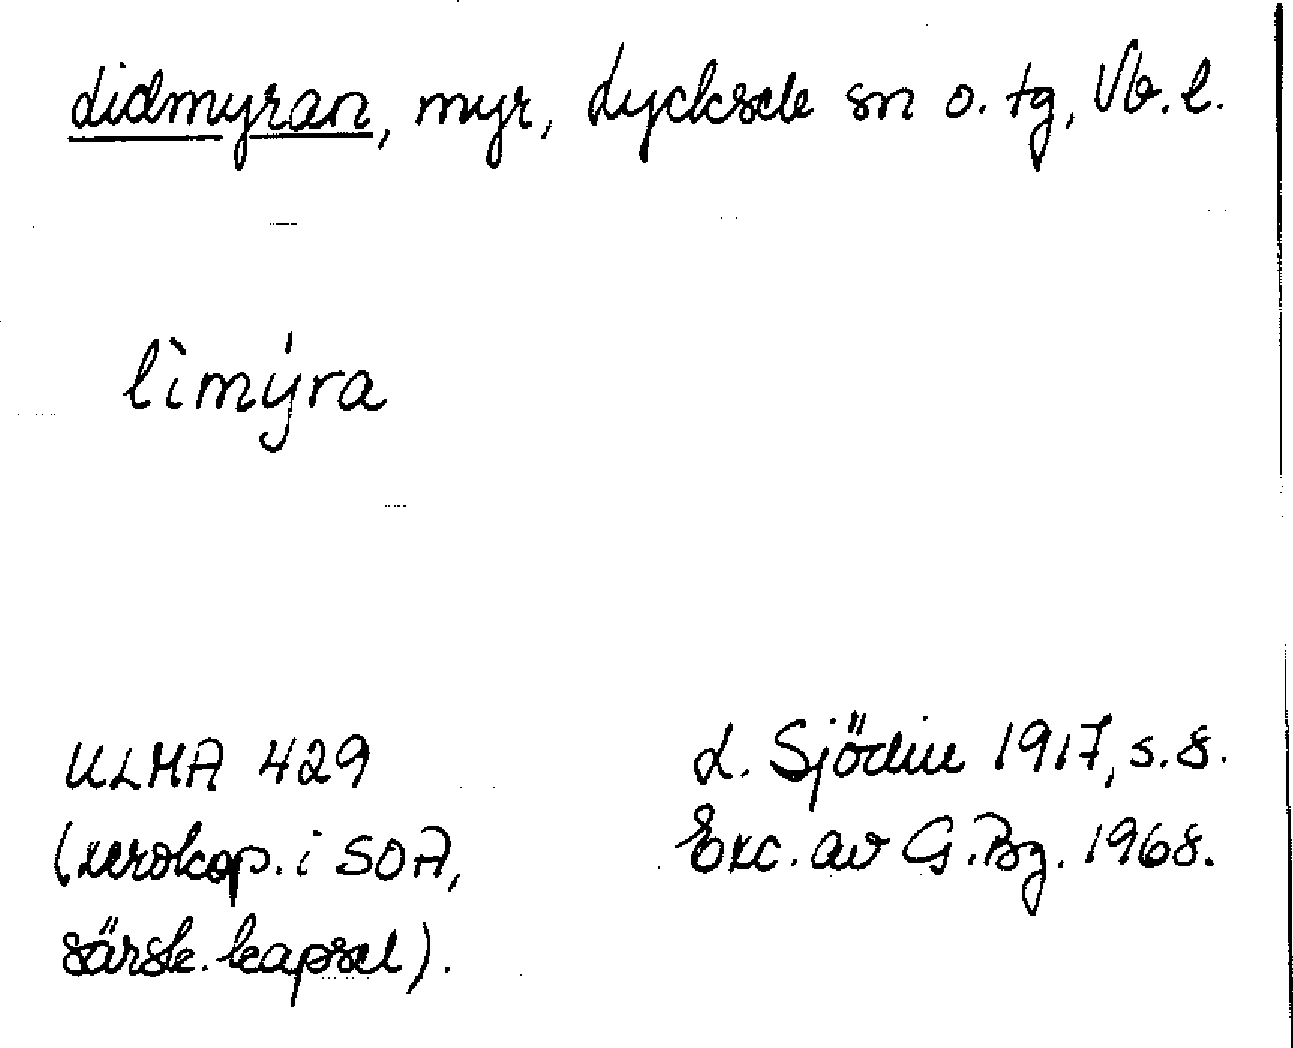 Lidmyran, myr, Lycksele sn o. tg, Vb. l.
lìmýra
ULMA 429
(xerokop. i SOA,
särsk. kapsel).
L. Sjödin 1917, s. 8.
Exc. av G. Bg. 1968.